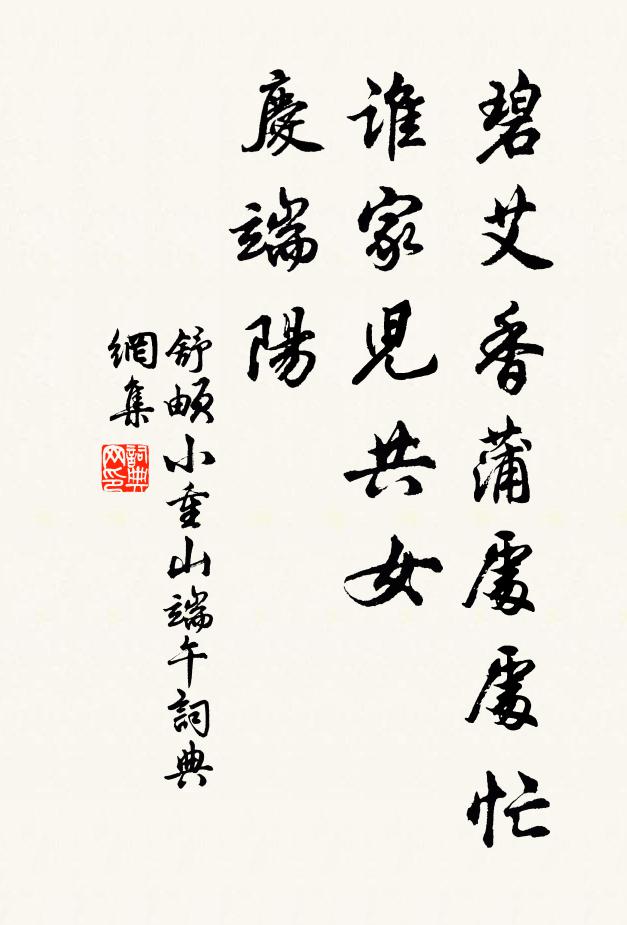 碧艾香蒲處處忙
誰家兒共女
慶端陽
舒頔小重山端午詞典
網集
詞典
网印